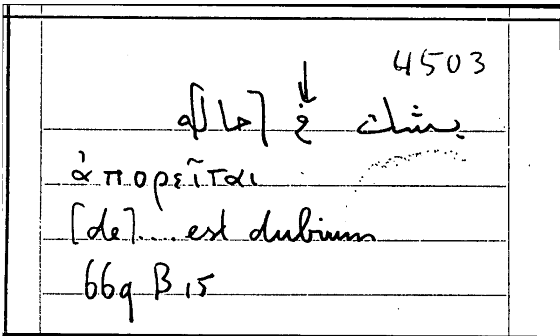 4503
يشك في [حاله
ἀπορεῖται
[de].... est dubium
669 B 15